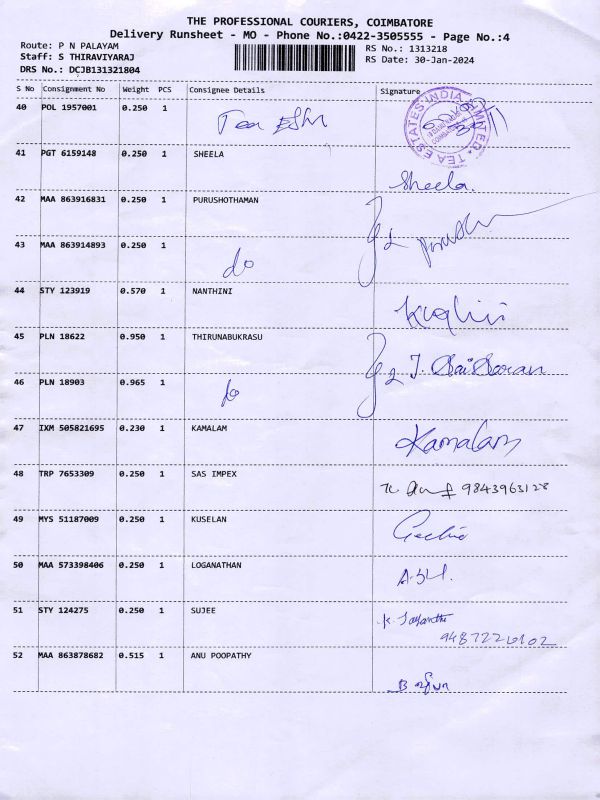 THE PROFESSIONAL COURIERS, COIMBATORE
Delivery Runsheet - MO - Phone No.:0422-3505555 - Page No.:4
Route: P N PALAYAM
Staff: S THIRAVIYARAJ
DRS No.: DCJB131321804
RS No.: 1313218
RS Date: 30-Jan-2024
S No Consignment No Weight PCS Consignee Details Signature
40 POL 1957001 0.250 1
TEA ESTATES INDIA LIMITED
41 PGT 6159148 0.250 1 SHEELA Sheela
42 MAA 863916831 0.250 1 PURUSHOTHAMAN
43 MAA 863914893 0.250 1 do 2
44 STY 123919 0.570 1 NANTHINI
45 PLN 18622 0.950 1 THIRUNABUKRASU
46 PLN 18903 0.965 1 do 2
47 IXM 505821695 0.230 1 KAMALAM Kamalam
48 TRP 7653309 0.250 1 SAS IMPEX 9843963128
49 MYS 51187009 0.250 1 KUSELAN
50 MAA 573398406 0.250 1 LOGANATHAN
51 STY 124275 0.250 1 SUJEE K. Jayanthi
9487220102
52 MAA 863878682 0.515 1 ANU POOPATHY